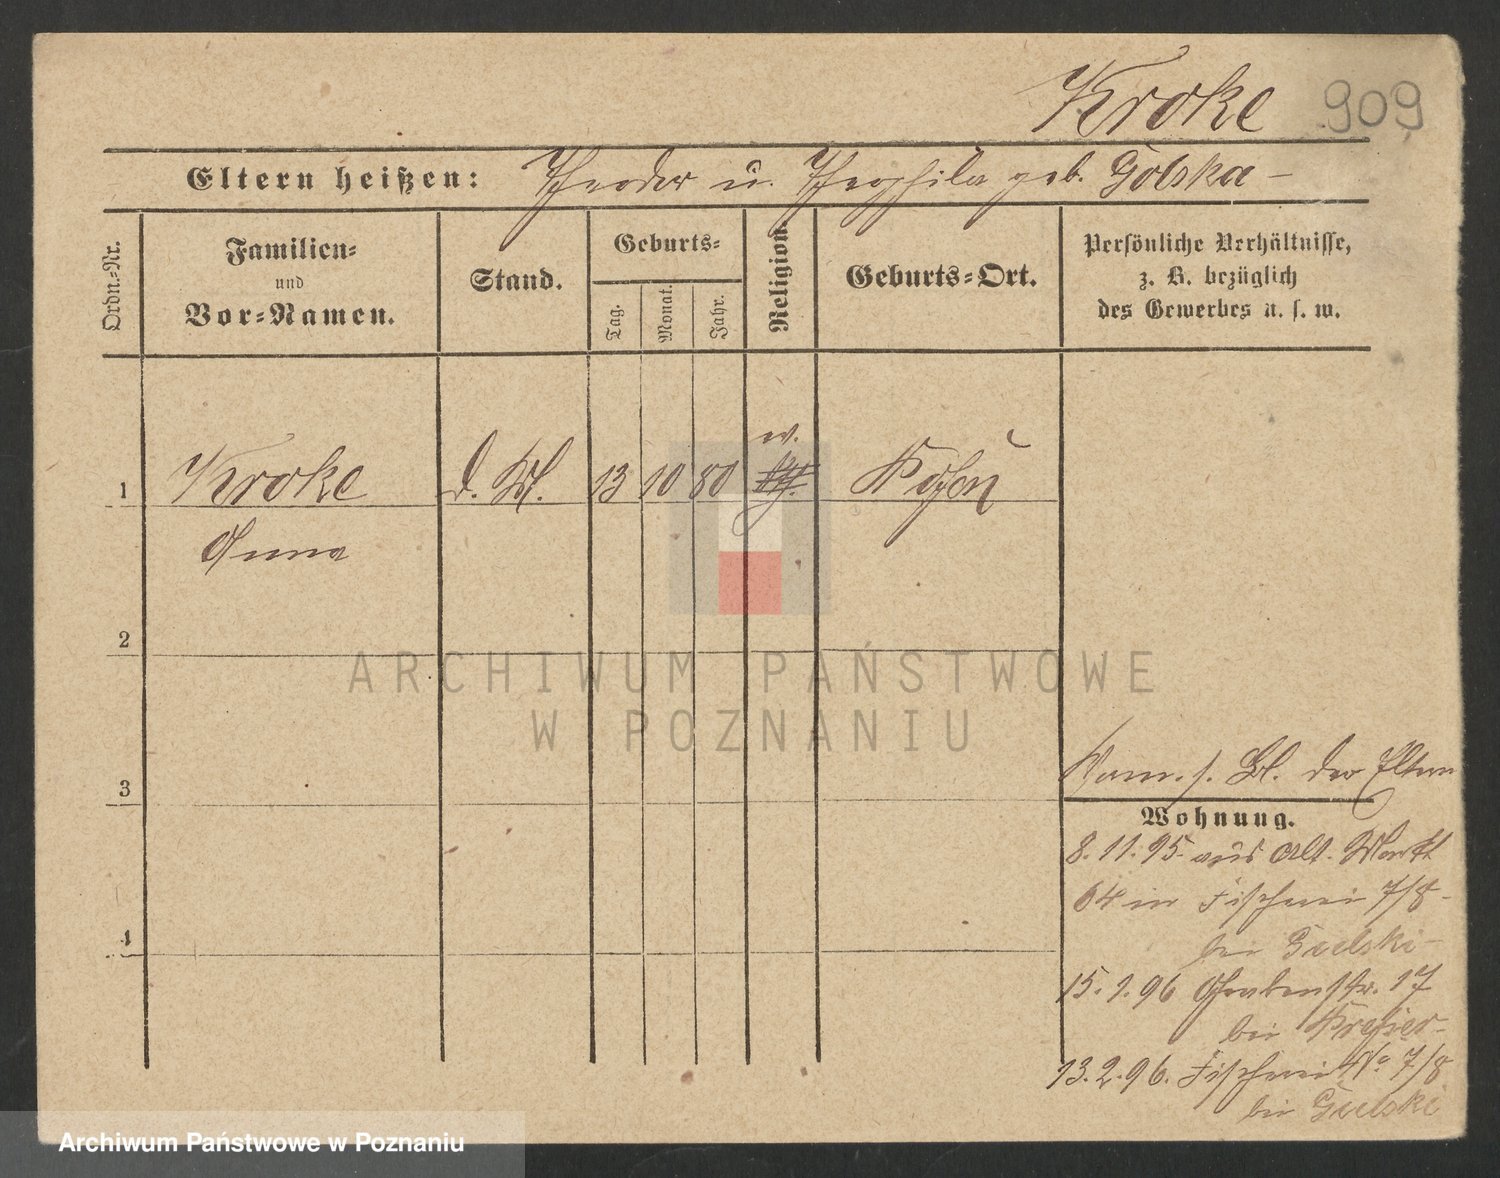 Kroke 909
Eltern heißen: Theodor u. Theophila geb. Golska -
Ordn.-Nr.
Familien-
und
Vor-Namen.
Stand.
Geburts-
Tag.
Monat.
Jahr.
Religion.
Geburts-Ort.
Persönliche Verhältnisse,
z. B. bezüglich
des Gewerbes u. s. w.
w.
1 Kroke d. 13 10 80 Posen
Anna
2
3
4
ARCHIWUM PAŃSTWOWE
W POZNANIU
s. Bl. der Eltern
Wohnung.
8.11.95 aus Alt. Markt
64 in Fischerei 7/8 -
bei
15.1.96 Grabenstr. 17
bei
13.2.96. Fischerei No 7/8
bei
Archiwum Państwowe w Poznaniu